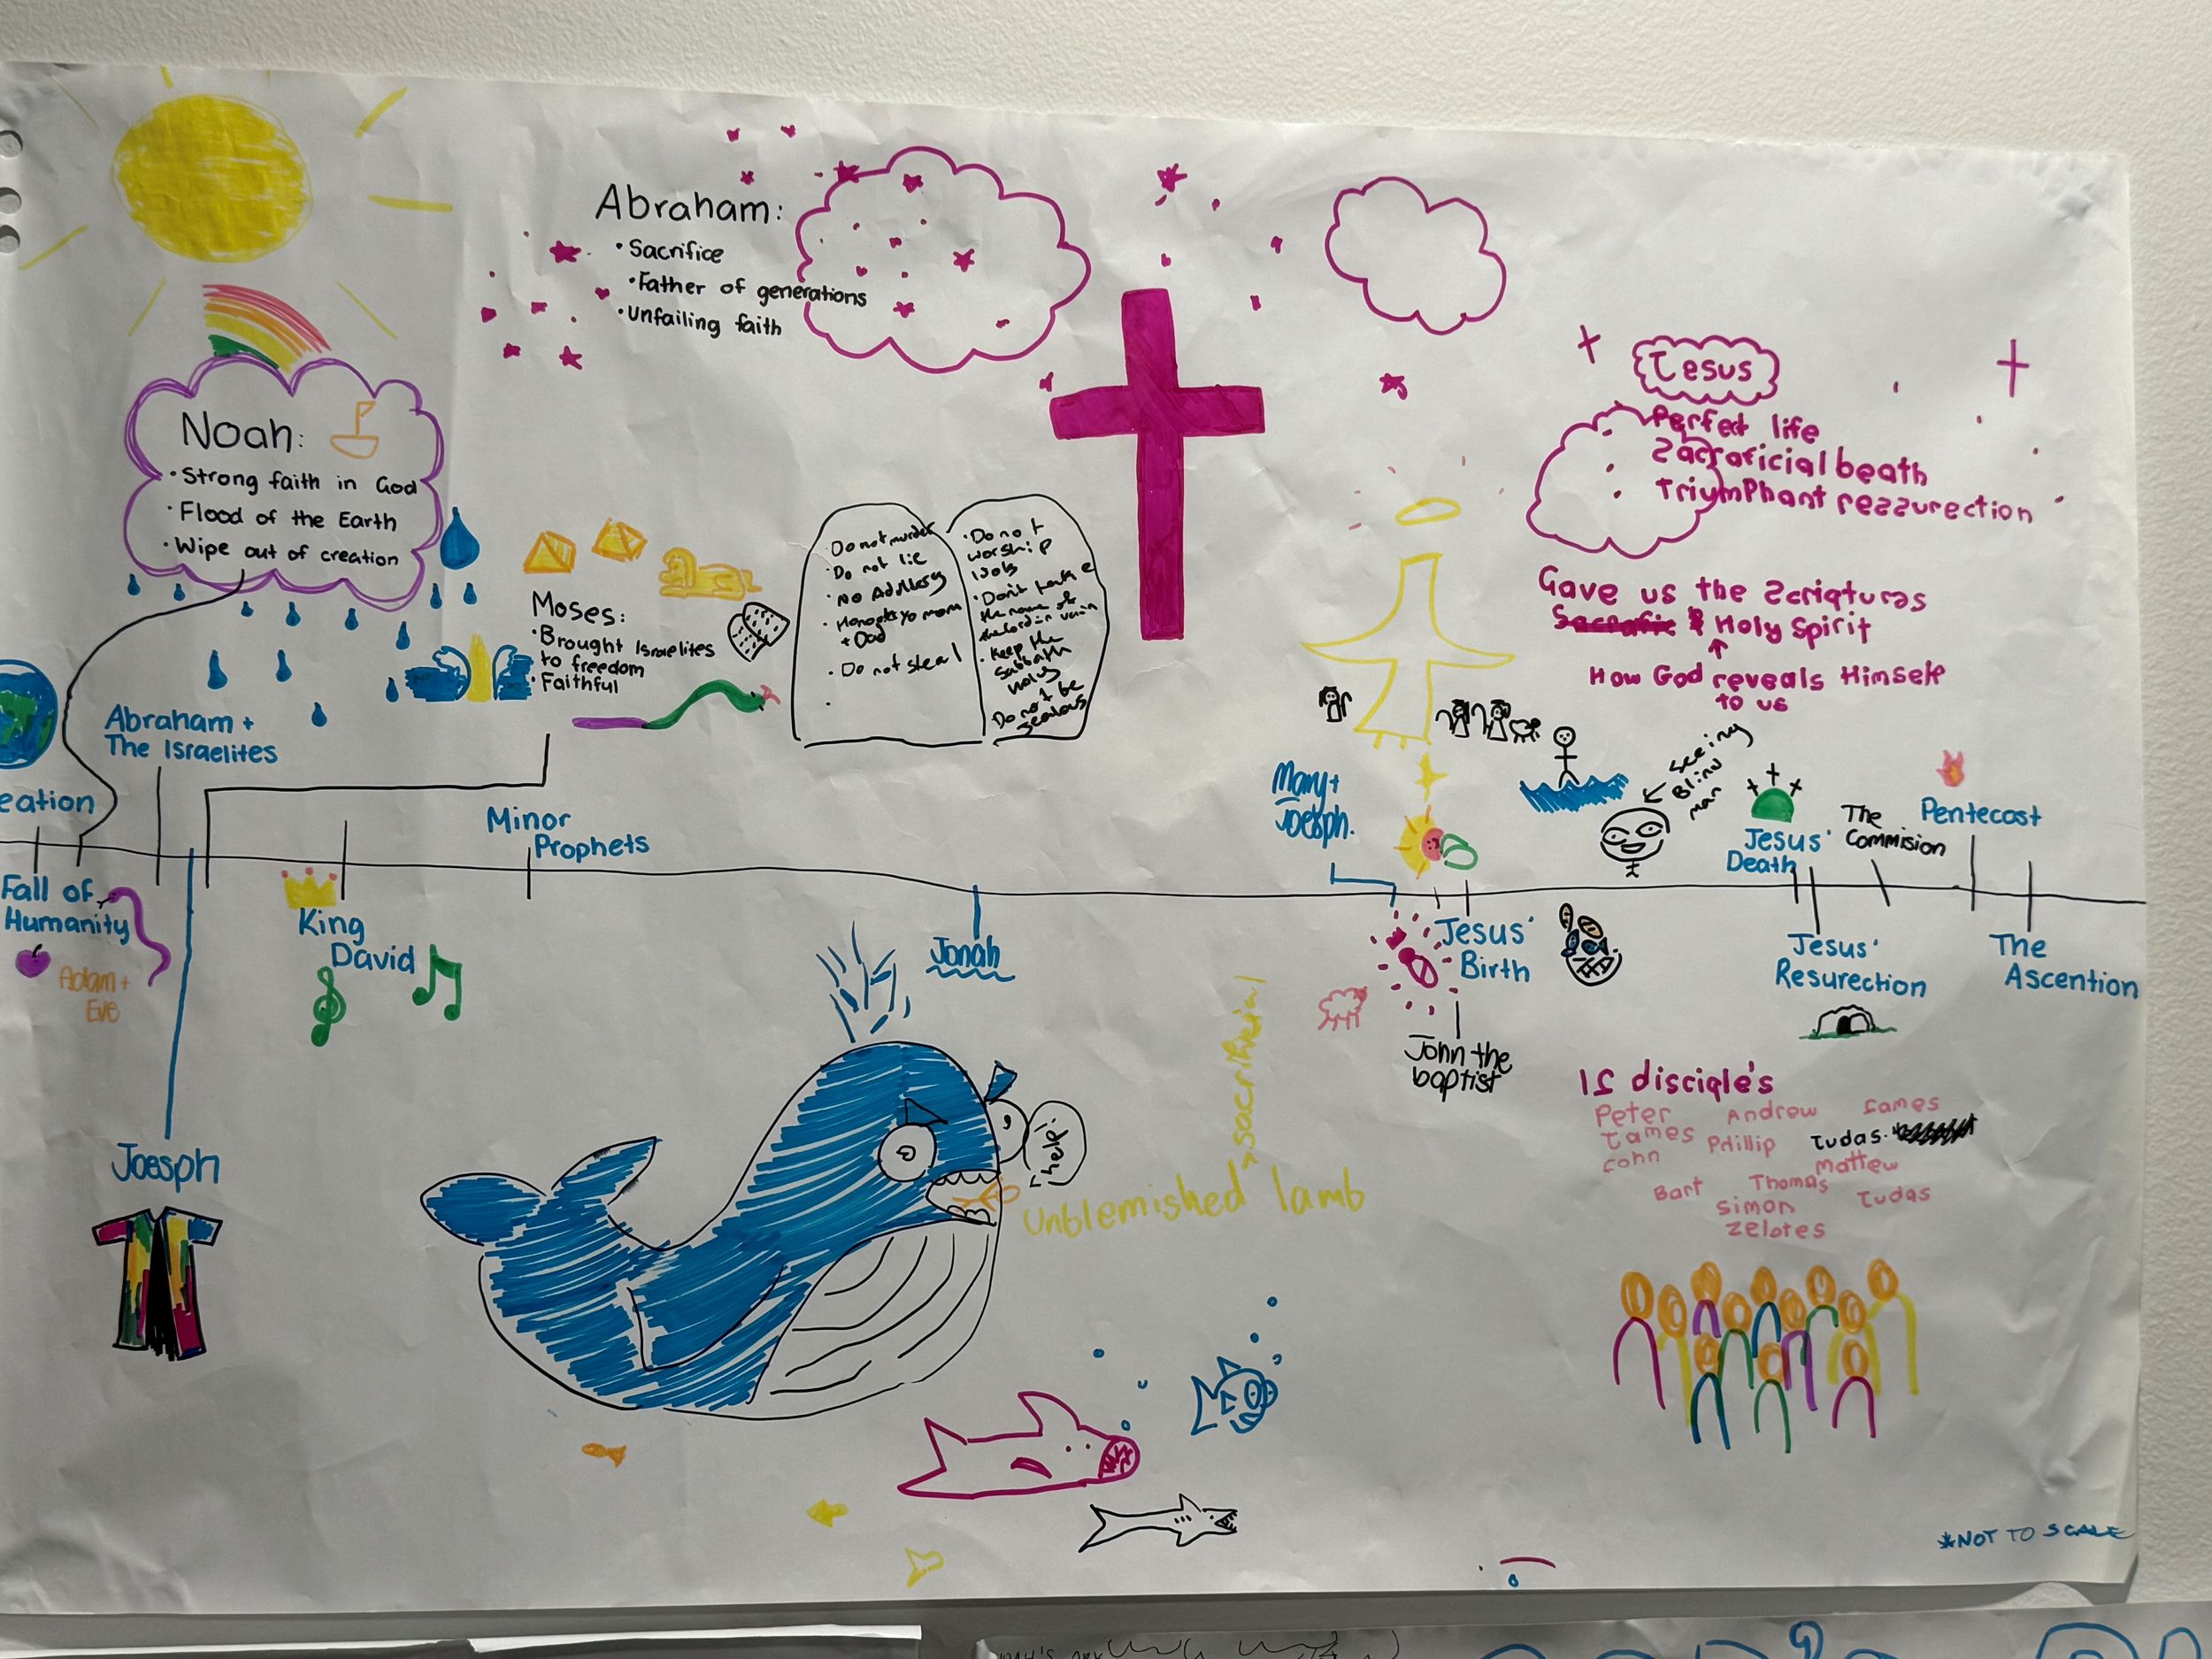 Abraham:
• Sacrifice
• Father of generations
• Unfailing faith
Noah:
• Strong faith in God
• Flood of the Earth
• Wipe out of creation
Moses:
• Brought Israelites
to freedom
• Faithful
• Do not murder
• Do not lie
• No Adultery
+ Dad
• Do not steal
• Do not
worship
idols
• Don't take
the name of
the lord in vain
• Keep the
Sabbath
Holy
Do not be
Jealous
Jesus
Perfect life
Sacraficial Death
Triumphant rezzurection
Gave us the Scriptures
& Holy Spirit
How God reveals Himself
to us
Abraham +
The Israelites
eation
Fall of
Humanity
Adam +
Eve
Joesph
King
David
Minor
Prophets
Jonah
help!
Unblemished lamb
Mary +
Joesph.
Jesus'
Birth
John the
baptist
seeing
Blind
man
Jesus'
Death
The
Commision
Pentecost
Jesus'
Resurection
The
Ascention
12 disciple's
Peter Andrew James
James Phillip Judas.
John Mattew
Bart Thomas Judas
Simon
Zelotes
*NOT TO SCALE